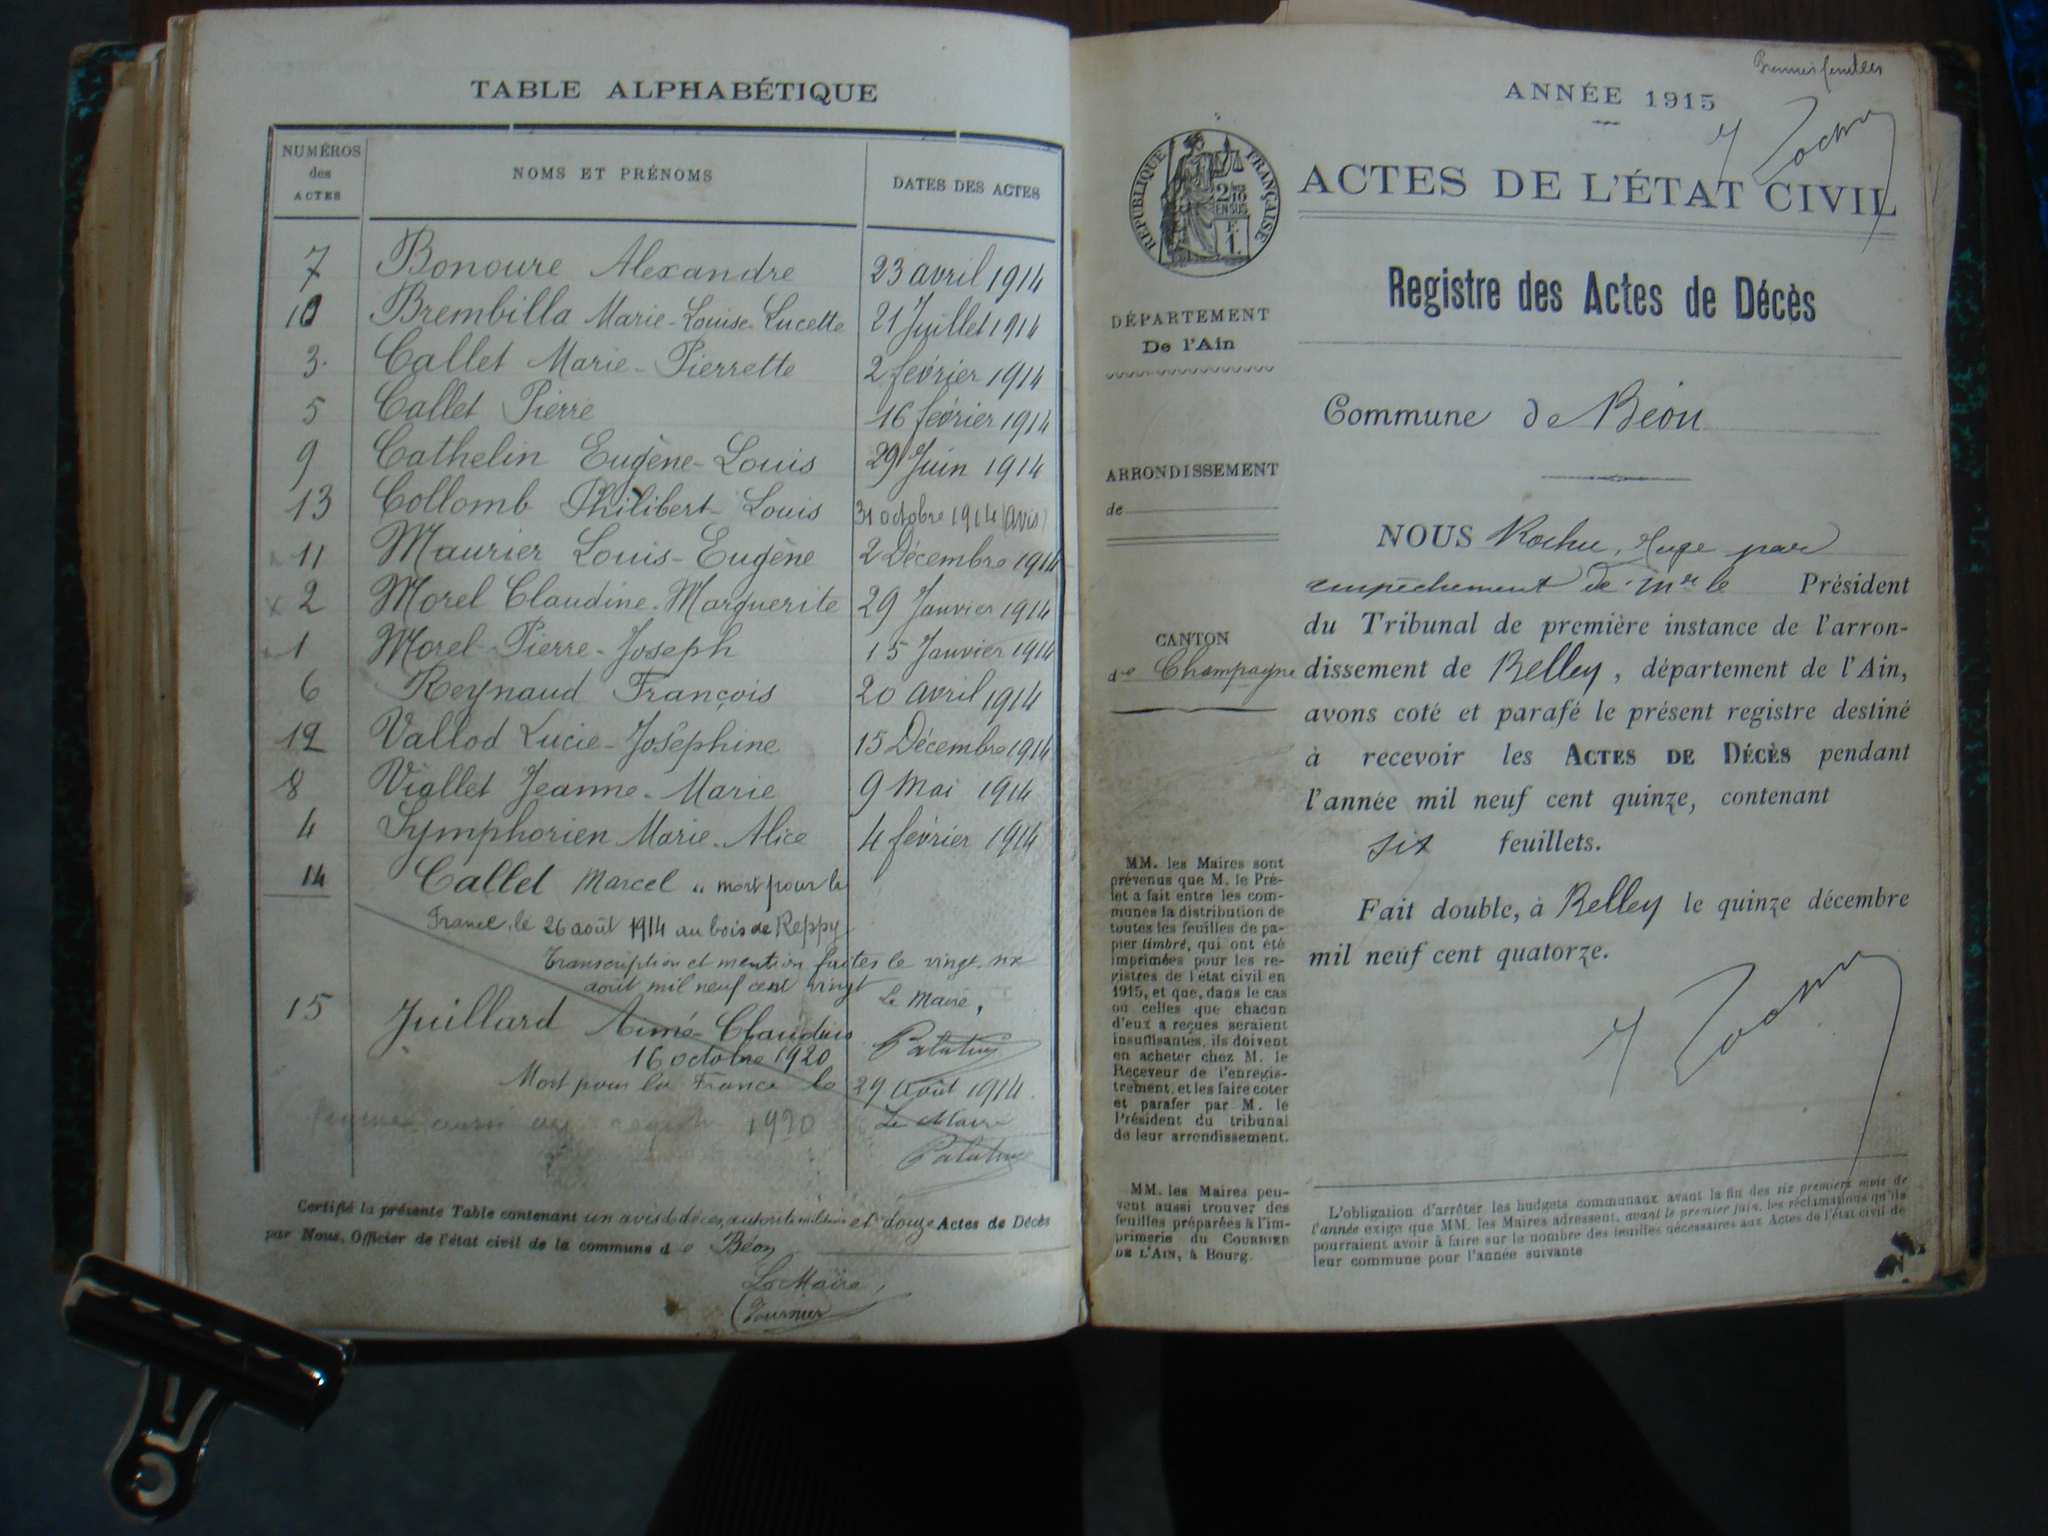 TABLE ALPHABÉTIQUE
NUMÉROS des ACTES
NOMS ET PRÉNOMS
DATES DES ACTES
7 Bonoure Alexandre 23 avril 1914
10 Brembilla Marie-Louise-Lucette 21 Juillet 1914
3. Callet Marie-Pierrette 2 février 1914
5 Callet Pierre 16 février 1914
9 Cathelin Eugène-Louis 29 Juin 1914
13 Collomb Philibert-Louis 31 octobre 1914 (avis)
11 Maurier Louis-Eugène 2 Décembre 1914
x 2 Morel Claudine-Marguerite 29 Janvier 1914
1 Morel Pierre-Joseph 15 Janvier 1914
6 Reynaud François 20 avril 1914
12 Vallod Lucie-Joséphine 15 Décembre 1914
8 Viallet Jeanne-Marie 9 Mai 1914
4 Symphorien Marie-Alice 4 février 1914
14 Callet Marcel " mort pour la
France le 26 août 1914 au bois de Reppy
Transcription et mention faites le vingt-six
août mil neuf cent vingt
Le Maire,
15 Juillard Aimé-Claudius
16 octobre 1920
Mort pour la France le 29 Août 1914.
1920 Le Maire
Certifié la présente Table contenant un avis de décès, autorité militaire et douze Actes de Décès
par Nous, Officier de l'état civil de la commune de Béon
Le Maire,
Fournier
Premier feuillet
ANNÉE 1915
RÉPUBLIQUE FRANÇAISE
2/10 EN SUS
F. 1.
ACTES DE L'ÉTAT CIVIL
Registre des Actes de Décès
DÉPARTEMENT
De l'Ain
Commune de Béon
ARRONDISSEMENT
de
CANTON
de Champagne
NOUS Rochu, Juge par
empêchement de Mr le Président
du Tribunal de première instance de l'arron-
dissement de Belley, département de l'Ain,
avons coté et parafé le présent registre destiné
à recevoir les ACTES DE DÉCÈS pendant
l'année mil neuf cent quinze, contenant
six feuillets.
Fait double, à Belley le quinze décembre
mil neuf cent quatorze.
MM. les Maires sont
prévenus que M. le Pré-
fet a fait entre les com-
munes la distribution de
toutes les feuilles de pa-
pier timbré, qui ont été
imprimées pour les re-
gistres de l'état civil en
1915, et que, dans le cas
où celles que chacun
d'eux a reçues seraient
insuffisantes, ils doivent
en acheter chez M. le
Receveur de l'enregis-
trement, et les faire coter
et parafer par M. le
Président du tribunal
de leur arrondissement.
MM. les Maires peu-
vent aussi trouver des
feuilles préparées à l'im-
primerie du COURRIER
DE L'AIN, à Bourg.
L'obligation d'arrêter les budgets communaux avant la fin des six premiers mois de
l'année exige que MM. les Maires adressent, avant le premier juin, les réclamations qu'ils
pourraient avoir à faire sur le nombre des feuilles nécessaires aux Actes de l'état civil de
leur commune pour l'année suivante